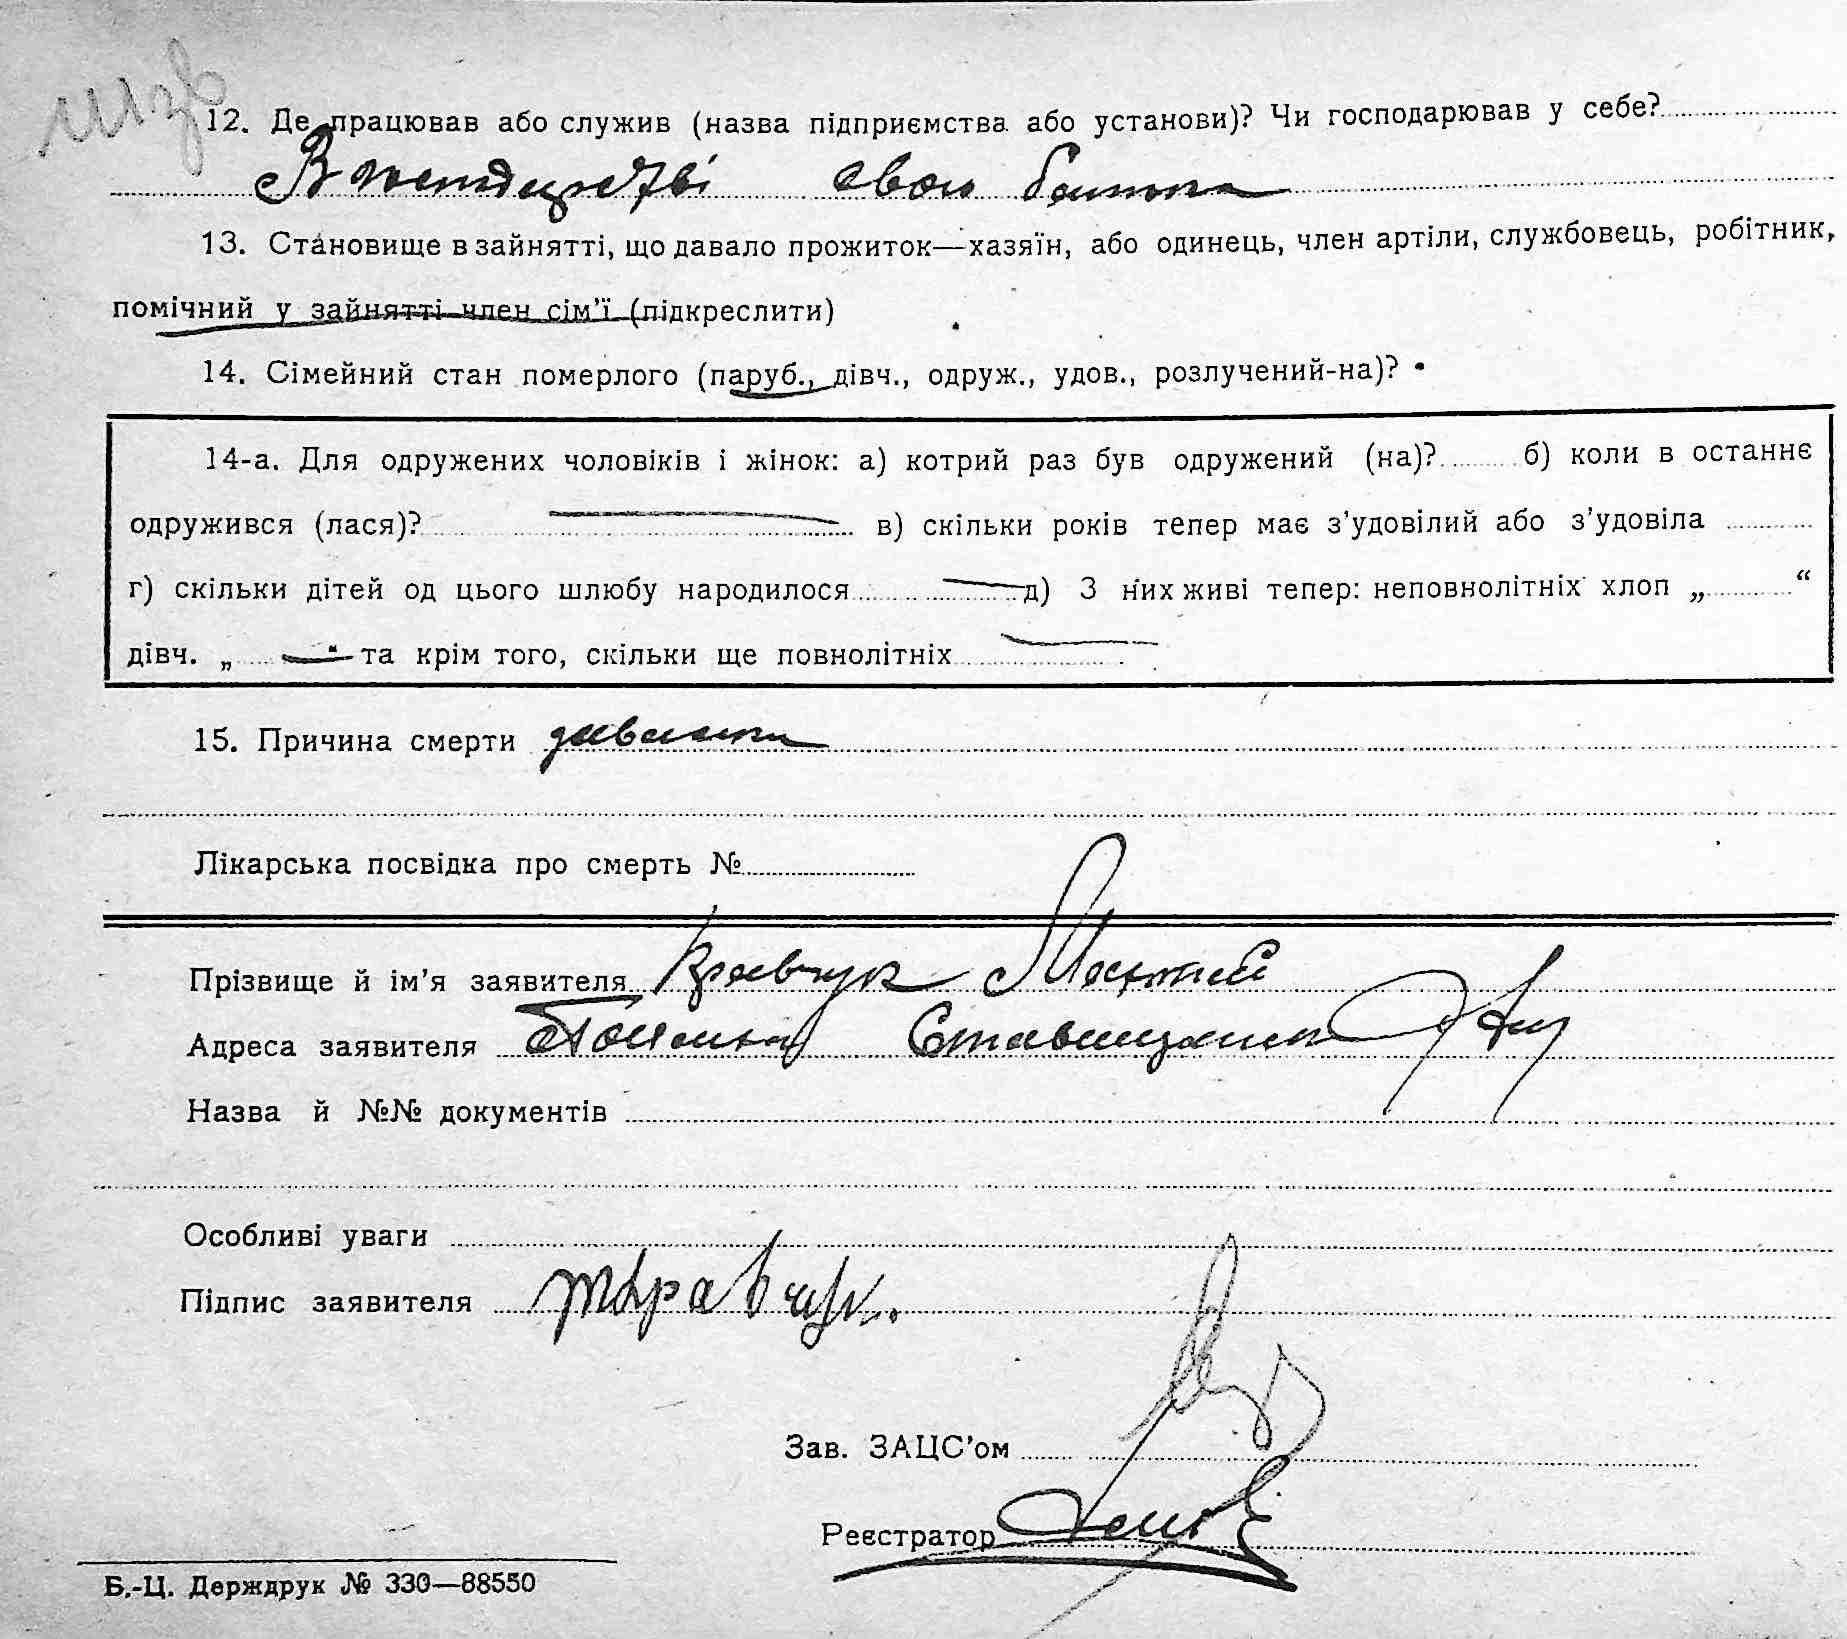 12. Де працював або служив (назва підприємства або установи)? Чи господарював у себе?
В свого батька
13. Становище в зайнятті, що давало прожиток—хазяїн, або одинець, член артіли, службовець, робітник,
помічний у зайнятті член сім'ї (підкреслити)
14. Сімейний стан померлого (паруб., дівч., одруж., удов., розлучений-на)?
14-а. Для одружених чоловіків і жінок: а) котрий раз був одружений (на)? б) коли в останнє
одружився (лася)? в) скільки років тепер має з'удовілий або з'удовіла
г) скільки дітей од цього шлюбу народилося д) З них живі тепер: неповнолітніх хлоп „ “
дівч. „ “ та крім того, скільки ще повнолітніх
15. Причина смерти
Лікарська посвідка про смерть №
Прізвище й ім'я заявителя Кравчук
Адреса заявителя
Назва й №№ документів
Особливі уваги
Підпис заявителя Кравчук.
Зав. ЗАЦС'ом
Реєстратор
Б.-Ц. Держдрук № 330—88550